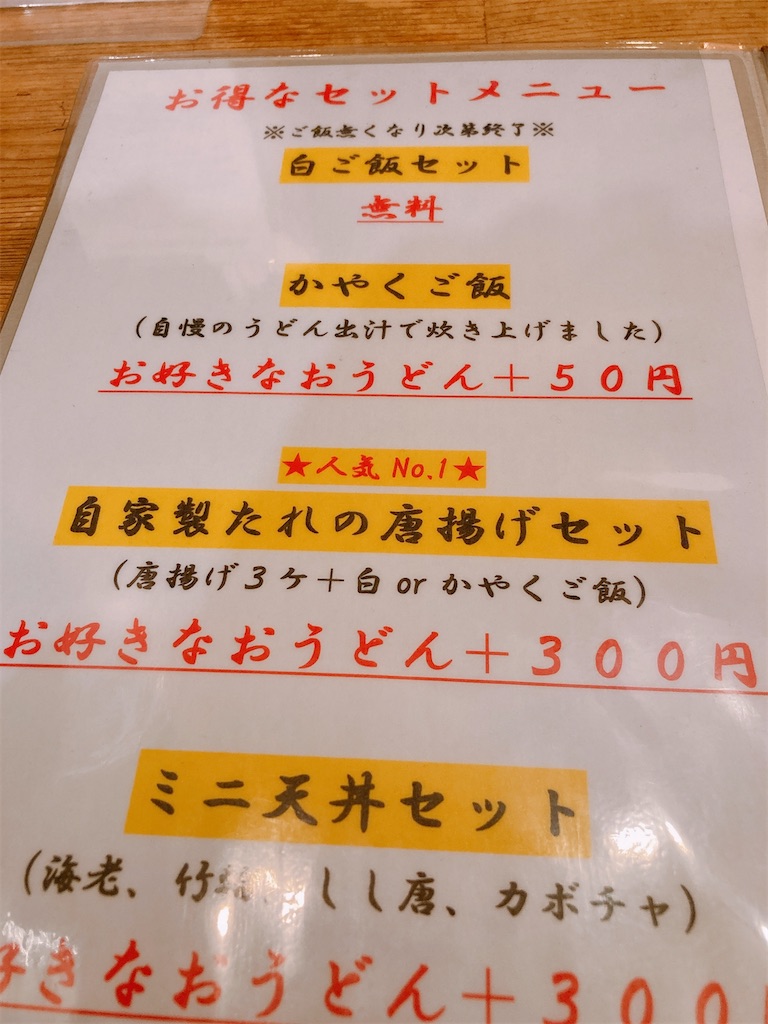 お得なセットメニュー
※ご飯無くなり次第終了※
白ご飯セット
無料
かやくご飯
(自慢のうどん出汁で炊き上げました)
お好きなおうどん＋50円
★人気 No.1★
自家製たれの唐揚げセット
(唐揚げ3ケ＋白 or かやくご飯)
お好きなおうどん＋300円
ミニ天丼セット
(海老、竹輪、しし唐、カボチャ)
好きなおうどん＋300